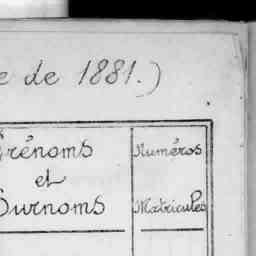 e de 1881.)
Prénoms
et
Surnoms
Numéros
Matricules